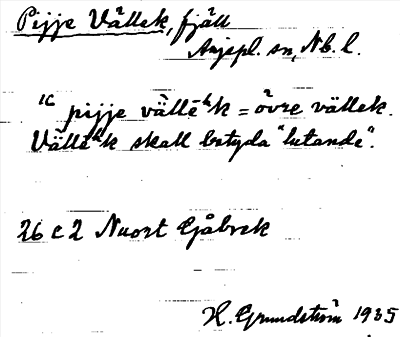 Pijje Vällek, fjäll
Arjepl. sn, Nb. l.
1c pijje vällēʰk = övre vällek.
Vällēʰk skall betyda "lutande".
26 c 2 Nuort Gåbrek
H. Grundström 1935